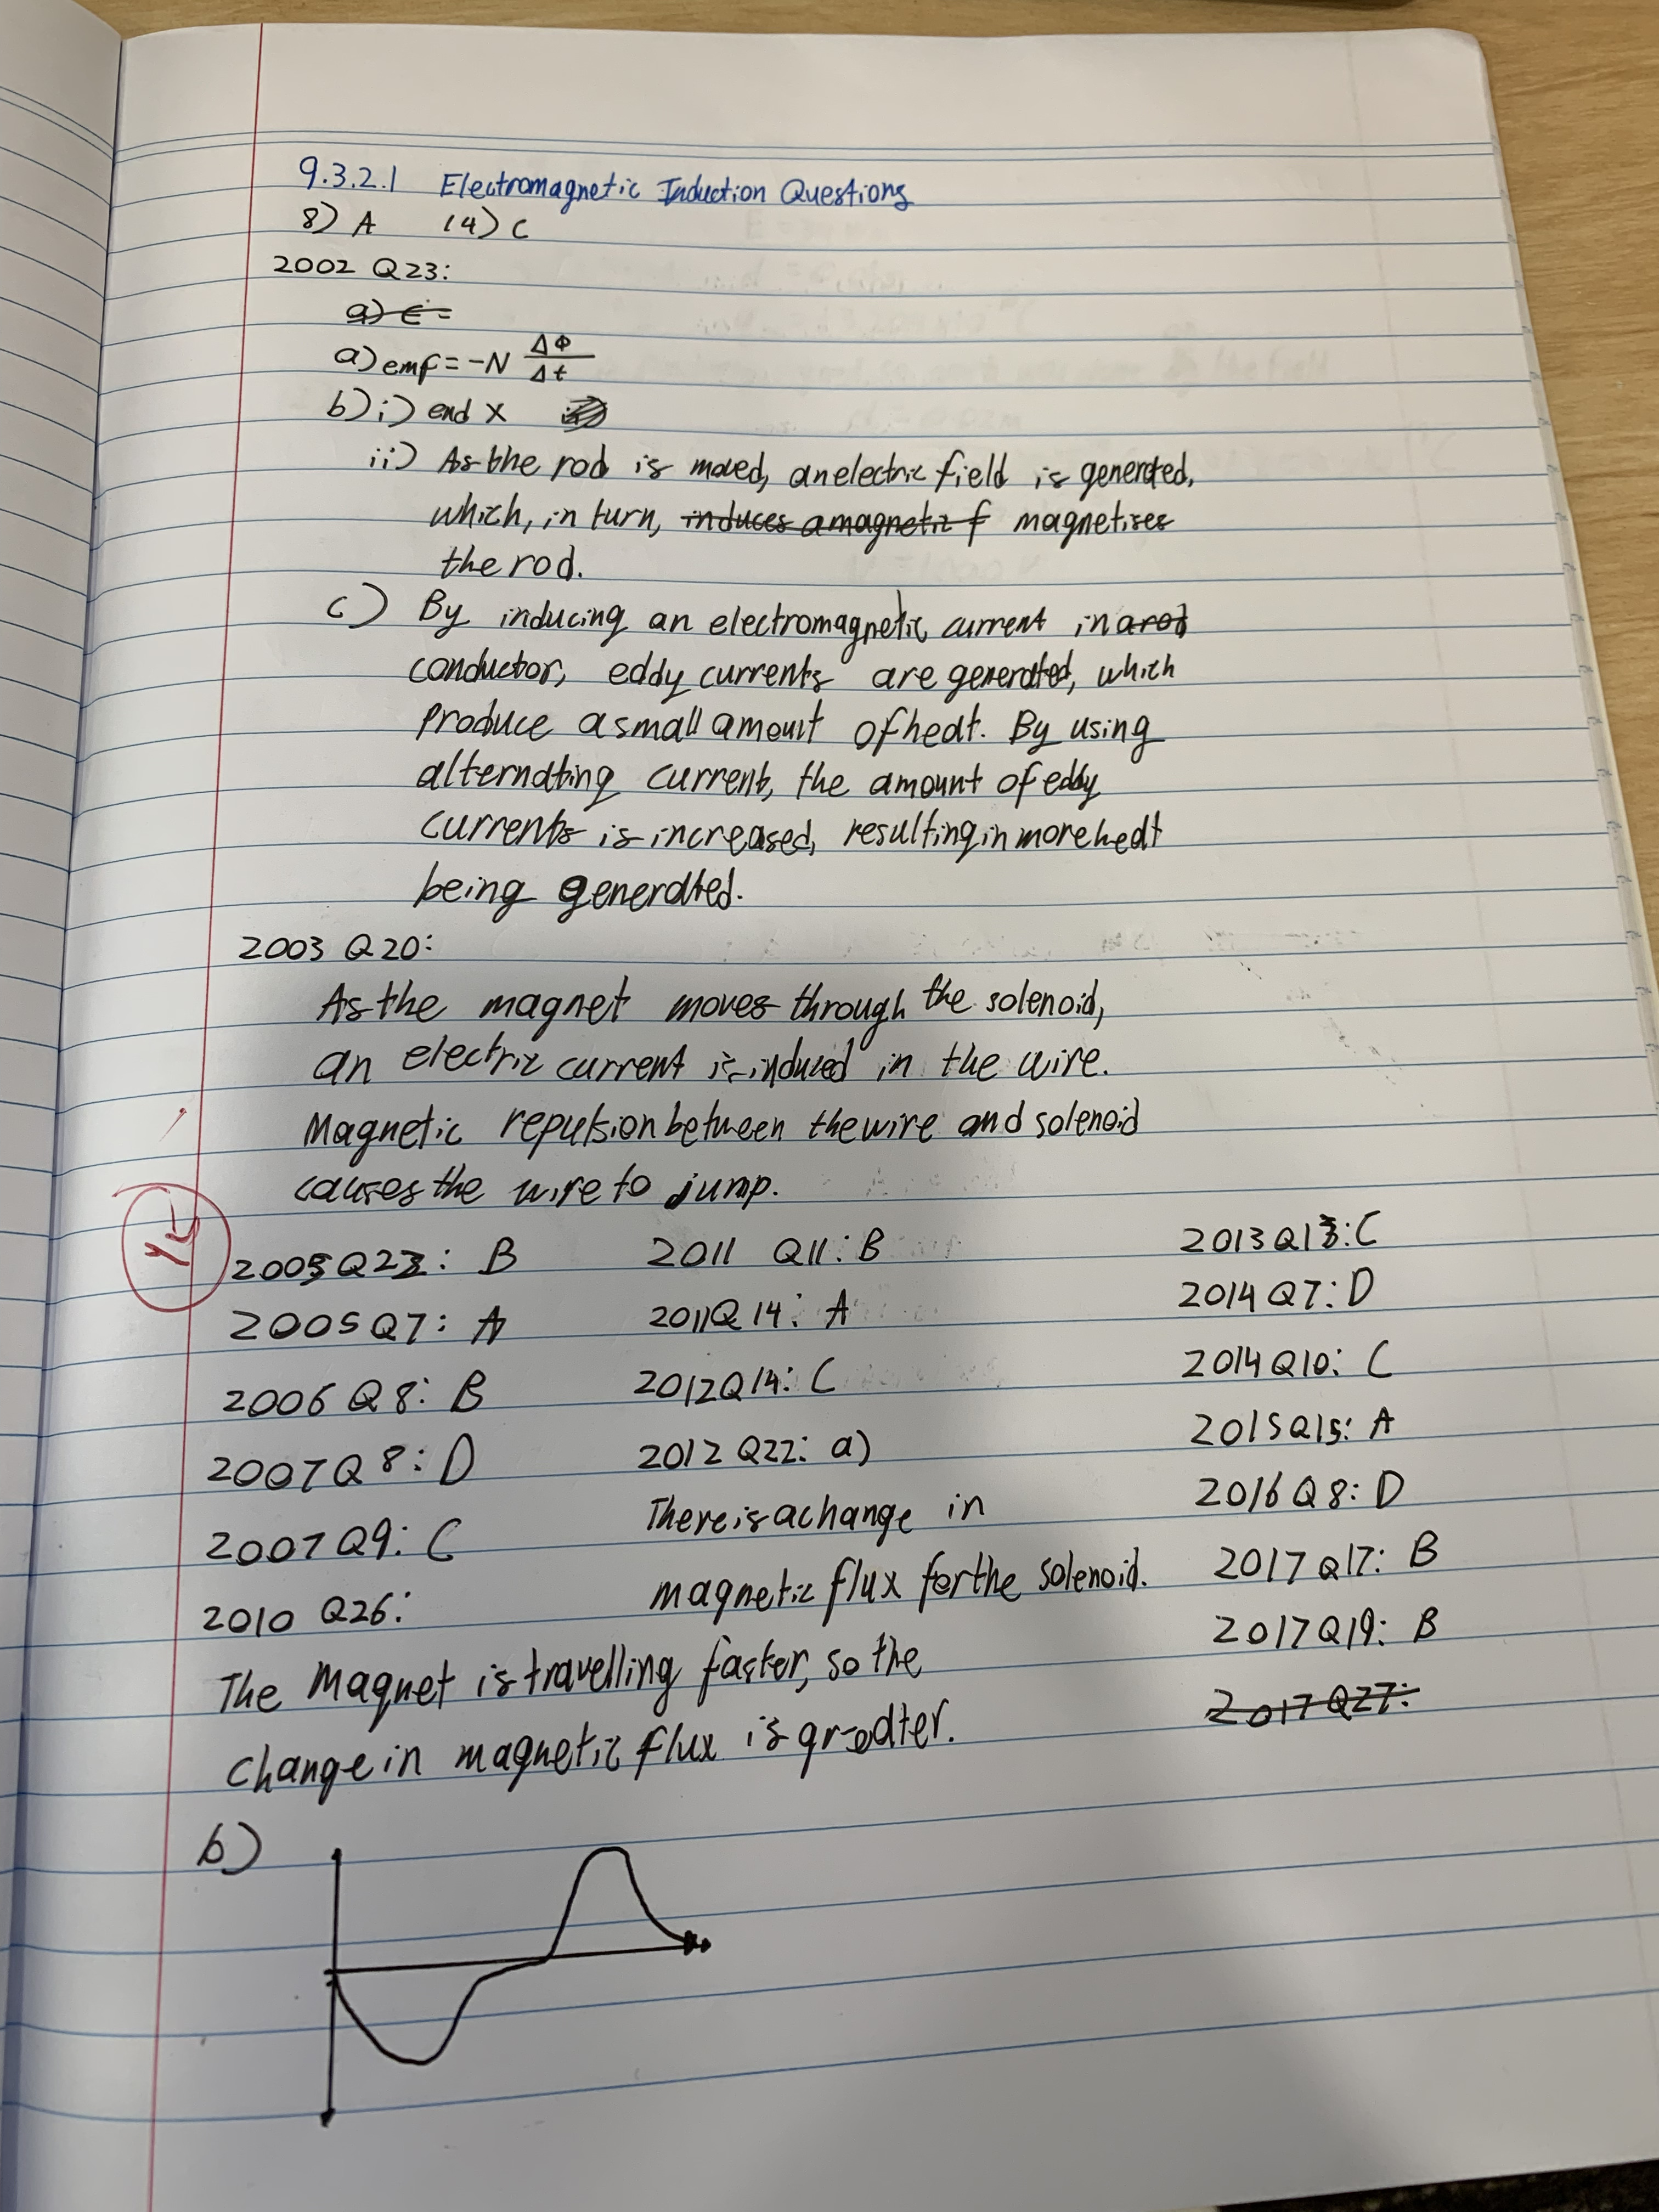 9.3.2.1 Electromagnetic Induction Questions
8) A 14) C
2002 Q23:
a) ε =
a) emf = -N ΔΦ/Δt
b) i) end X
ii) As the rod is moved, an electric field is generated,
which, in turn, induces a magnetic f magnetises
the rod.
c) By inducing an electromagnetic current in a rod
conductor, eddy currents are generated, which
produce a small amount of heat. By using
alternating current, the amount of eddy
currents is increased, resulting in more heat
being generated.
2003 Q20:
As the magnet moves through the solenoid,
an electric current is induced in the wire.
Magnetic repulsion between the wire and solenoid
causes the wire to jump.
2005 Q23: B
2005 Q7: A
2006 Q8: B
2007 Q8: D
2007 Q9: C
2010 Q26:
The Magnet is travelling faster, so the
change in magnetic flux is greater.
b)
2011 Q11: B
2011 Q14: A
2012 Q14: C
2012 Q22: a)
There is a change in
magnetic flux for the solenoid.
2013 Q13: C
2014 Q7: D
2014 Q10: C
2015 Q15: A
2016 Q8: D
2017 Q17: B
2017 Q19: B
2017 Q27: